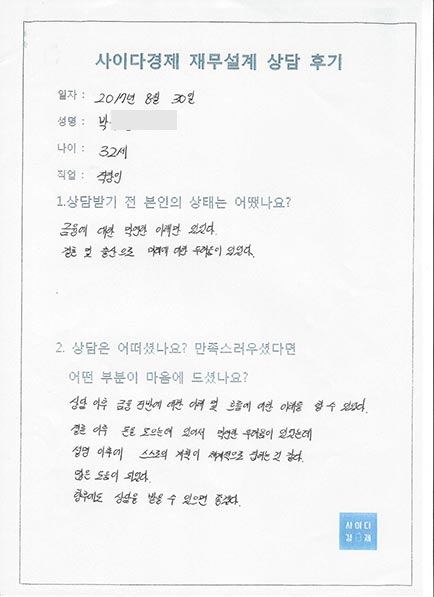 사이다경제 재무설계 상담 후기
일자 : 2017년 8월 30일
성명 : 박
나이 : 32세
직업 : 직장인
1.상담받기 전 본인의 상태는 어땠나요?
금융에 대한 막연한 이해만 있었다.
결혼 및 출산으로 미래에 대한 두려움이 있었다.
2. 상담은 어떠셨나요? 만족스러우셨다면
어떤 부분이 마음에 드셨나요?
상담 이후 금융 전반에 대한 이해 및 흐름에 대한 이해를 할 수 있었다.
결혼 이후 돈을 모으는데 있어서 막연한 두려움이 있었는데
설명 이후에 스스로의 계획이 체계적으로 잡히는 것 같다.
많은 도움이 되었다.
향후에도 상담을 받을 수 있으면 좋겠다.
사이다
경제